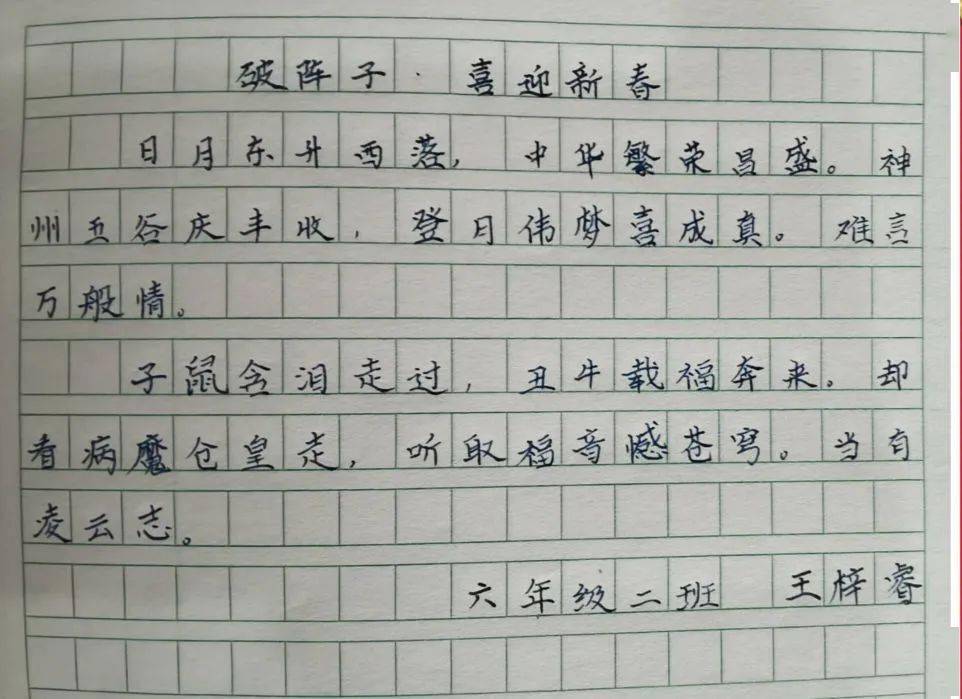 破阵子·喜迎新春
日月东升西落，中华繁荣昌盛。神
州五谷庆丰收，登月伟梦喜成真。难言
万般情。
子鼠含泪走过，丑牛载福奔来。却
看病魔仓皇走，听取福音憾苍穹。当有
凌云志。
六年级二班 王梓睿